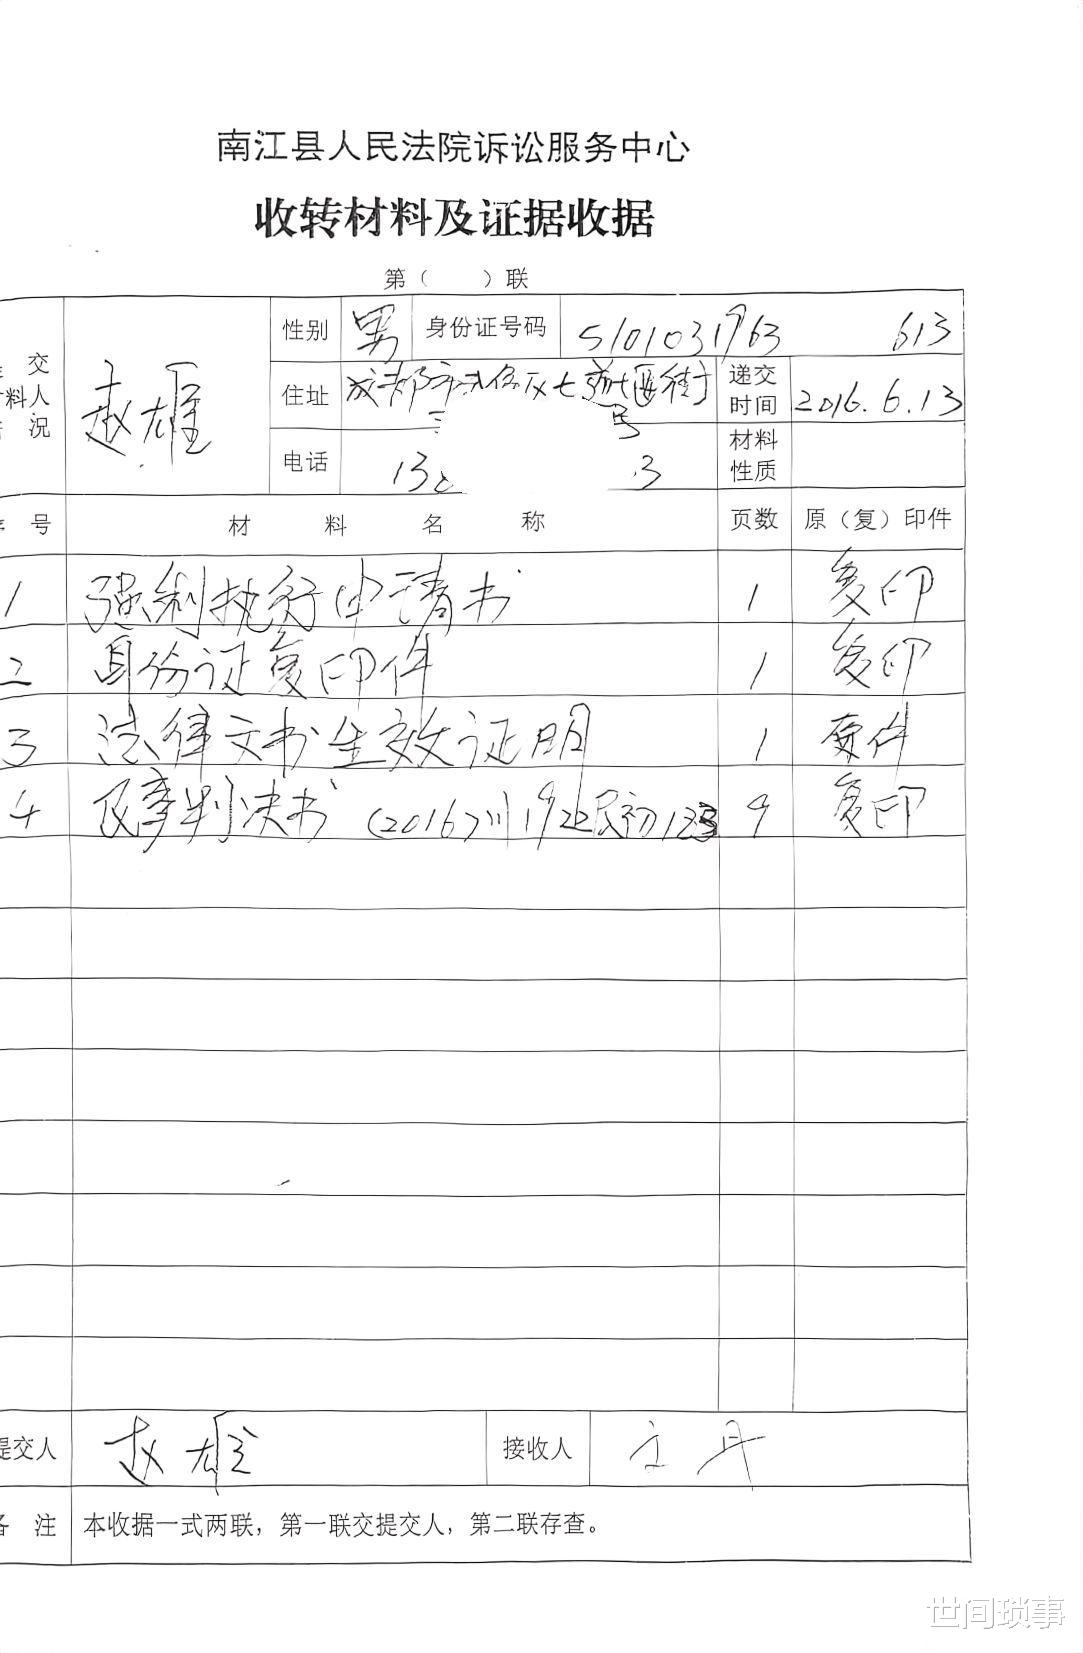 南江县人民法院诉讼服务中心
收转材料及证据收据
第（ ）联
交 料人 况 赵雄 性别 男 身份证号码 5101031963 613
住址 成都市 区七 堰街 号 递交时间 2016.6.13
电话 13 3 材料性质
号 材料名称 页数 原（复）印件
1 强制执行申请书 1 复印
2 身份证复印件 1 复印
3 法律文书生效证明 1 原件
4 民事判决书 (2016)川1922民初123 9 复印
提交人 赵雄 接收人
备注 本收据一式两联，第一联交提交人，第二联存查。
世间琐事